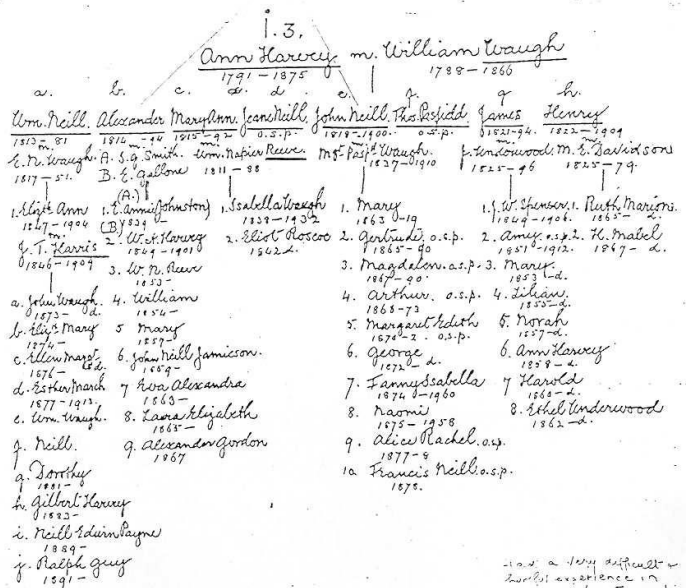 1.3.
Ann Harvey m. William Waugh
1791-1875 1788-1866
a. b. c. d. e. f. g. h.
Wm. Neill. Alexander Mary Ann. Jeane Neill. John Neill. Thos. James Henry
1813-81 1814-94 1815-92 o.s.p. 1818-1900. o.s.p. 1821-94. 1822-1909
m. m. m. m. m. m.
E. N. Waugh. A. S. G. Smith. Wm. Napier Reeve. Waugh. M. E. Davidson
1817-51. B. E. Gallone 1811-88 1837-1910 1825-96 1825-79.
(A.)
1. Elizth Ann 1. E. Annie (Johnston) 1. Isabella Waugh 1. Mary 1. J. W. Spenser. 1. Ruth Marion.
1847-1904 (B) 1839 1838-1932 1863-19 1849-1906. 1865- d.
m.
J. T. Harris 2. W. A. Harvey 2. Eliot Roscoe 2. Gertrude, o.s.p. 2. Amy, o.s.p. 2. H. Mabel
1846-1909 1849-1901 1842 d. 1865-90 1851-1912. 1867- d.
3. W. N. Reeve 3. Magdalen. o.s.p. 3. Mary.
1853- 1867-90. 1853-d.
a. John Waugh. 4. William 4. Arthur. o.s.p. 4. Lilian.
1873- d. 1854- 1868-73 1855-d.
b. Elizth Mary 5 Mary 5. Margaret Edith 5. Norah
1874- 1857- 1870-2. o.s.p. 1857-d.
c. Ellen Margt 6. John Neill Jamieson. 6. George 6. Ann Harvey
1876- d. 1859- 1872- d. 1858-d.
d. Esther March 7 Eva Alexandra 7. Fanny Isabella 7 Harold
1877-1912. 1863- 1874-1960 1860-d.
e. Wm. Waugh. 8. Laura Elizabeth 8. Naomi 8. Ethel Underwood
1865- 1875-1958 1862-d.
f. Neill. 9. Alexander Gordon 9. Alice Rachel. o.s.p.
1867 1877-8
g. Dorothy 10 Francis Neill. o.s.p.
1881- 1878.
h. Gilbert Harvey
1883-
i. Neill Edwin Payne
1889-
j. Ralph Guy
1891-
a very difficult
experience in